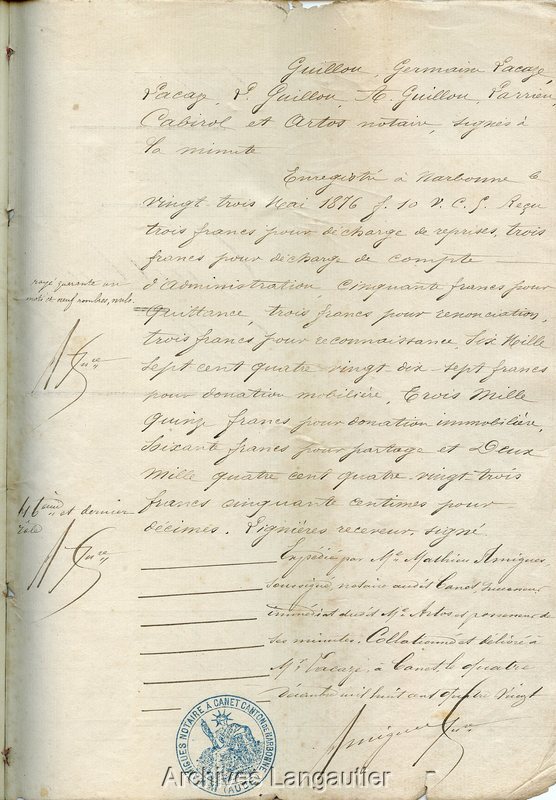 Guillou, Germain Lacaze,
Lacaze, P. Guillou, A Guillou, Larrieu,
Cabirol et Artos notaire, signés à
la minute
Enregistré à Narbonne le
vingt trois Mai 1876 f. 10 V. C. 5. Reçu
trois francs pour décharge de reprises, trois
francs pour décharge de compte
d'administration, cinquante francs pour
Quittance, trois francs pour renonciation,
trois francs pour reconnaissance, Six Mille
Sept cent quatre vingt dix-sept francs
pour donation mobilière, Trois Mille
Quinze francs pour donation immobilière,
Soixante francs pour partage et Deux
Mille quatre cent quatre-vingt-trois
francs cinquante centimes pour
décimes. Lignières receveur, signé.
rayé quarante un
mots et neuf nombres, nuls.
46ème et dernier
rôle
Expédié par Me Mathieu Amigues
soussigné, notaire audit Canet, successeur
immédiat dudit Me Artos et possesseur de
ses minutes. Collationné et délivré à
Mr Lacaze, à Canet, le quatre
décembre mil huit cent quatre vingt
Amigues
AMIGUES NOTAIRE À CANET CANTON DE NARBONNE
(AUDE)
Archives Langautier